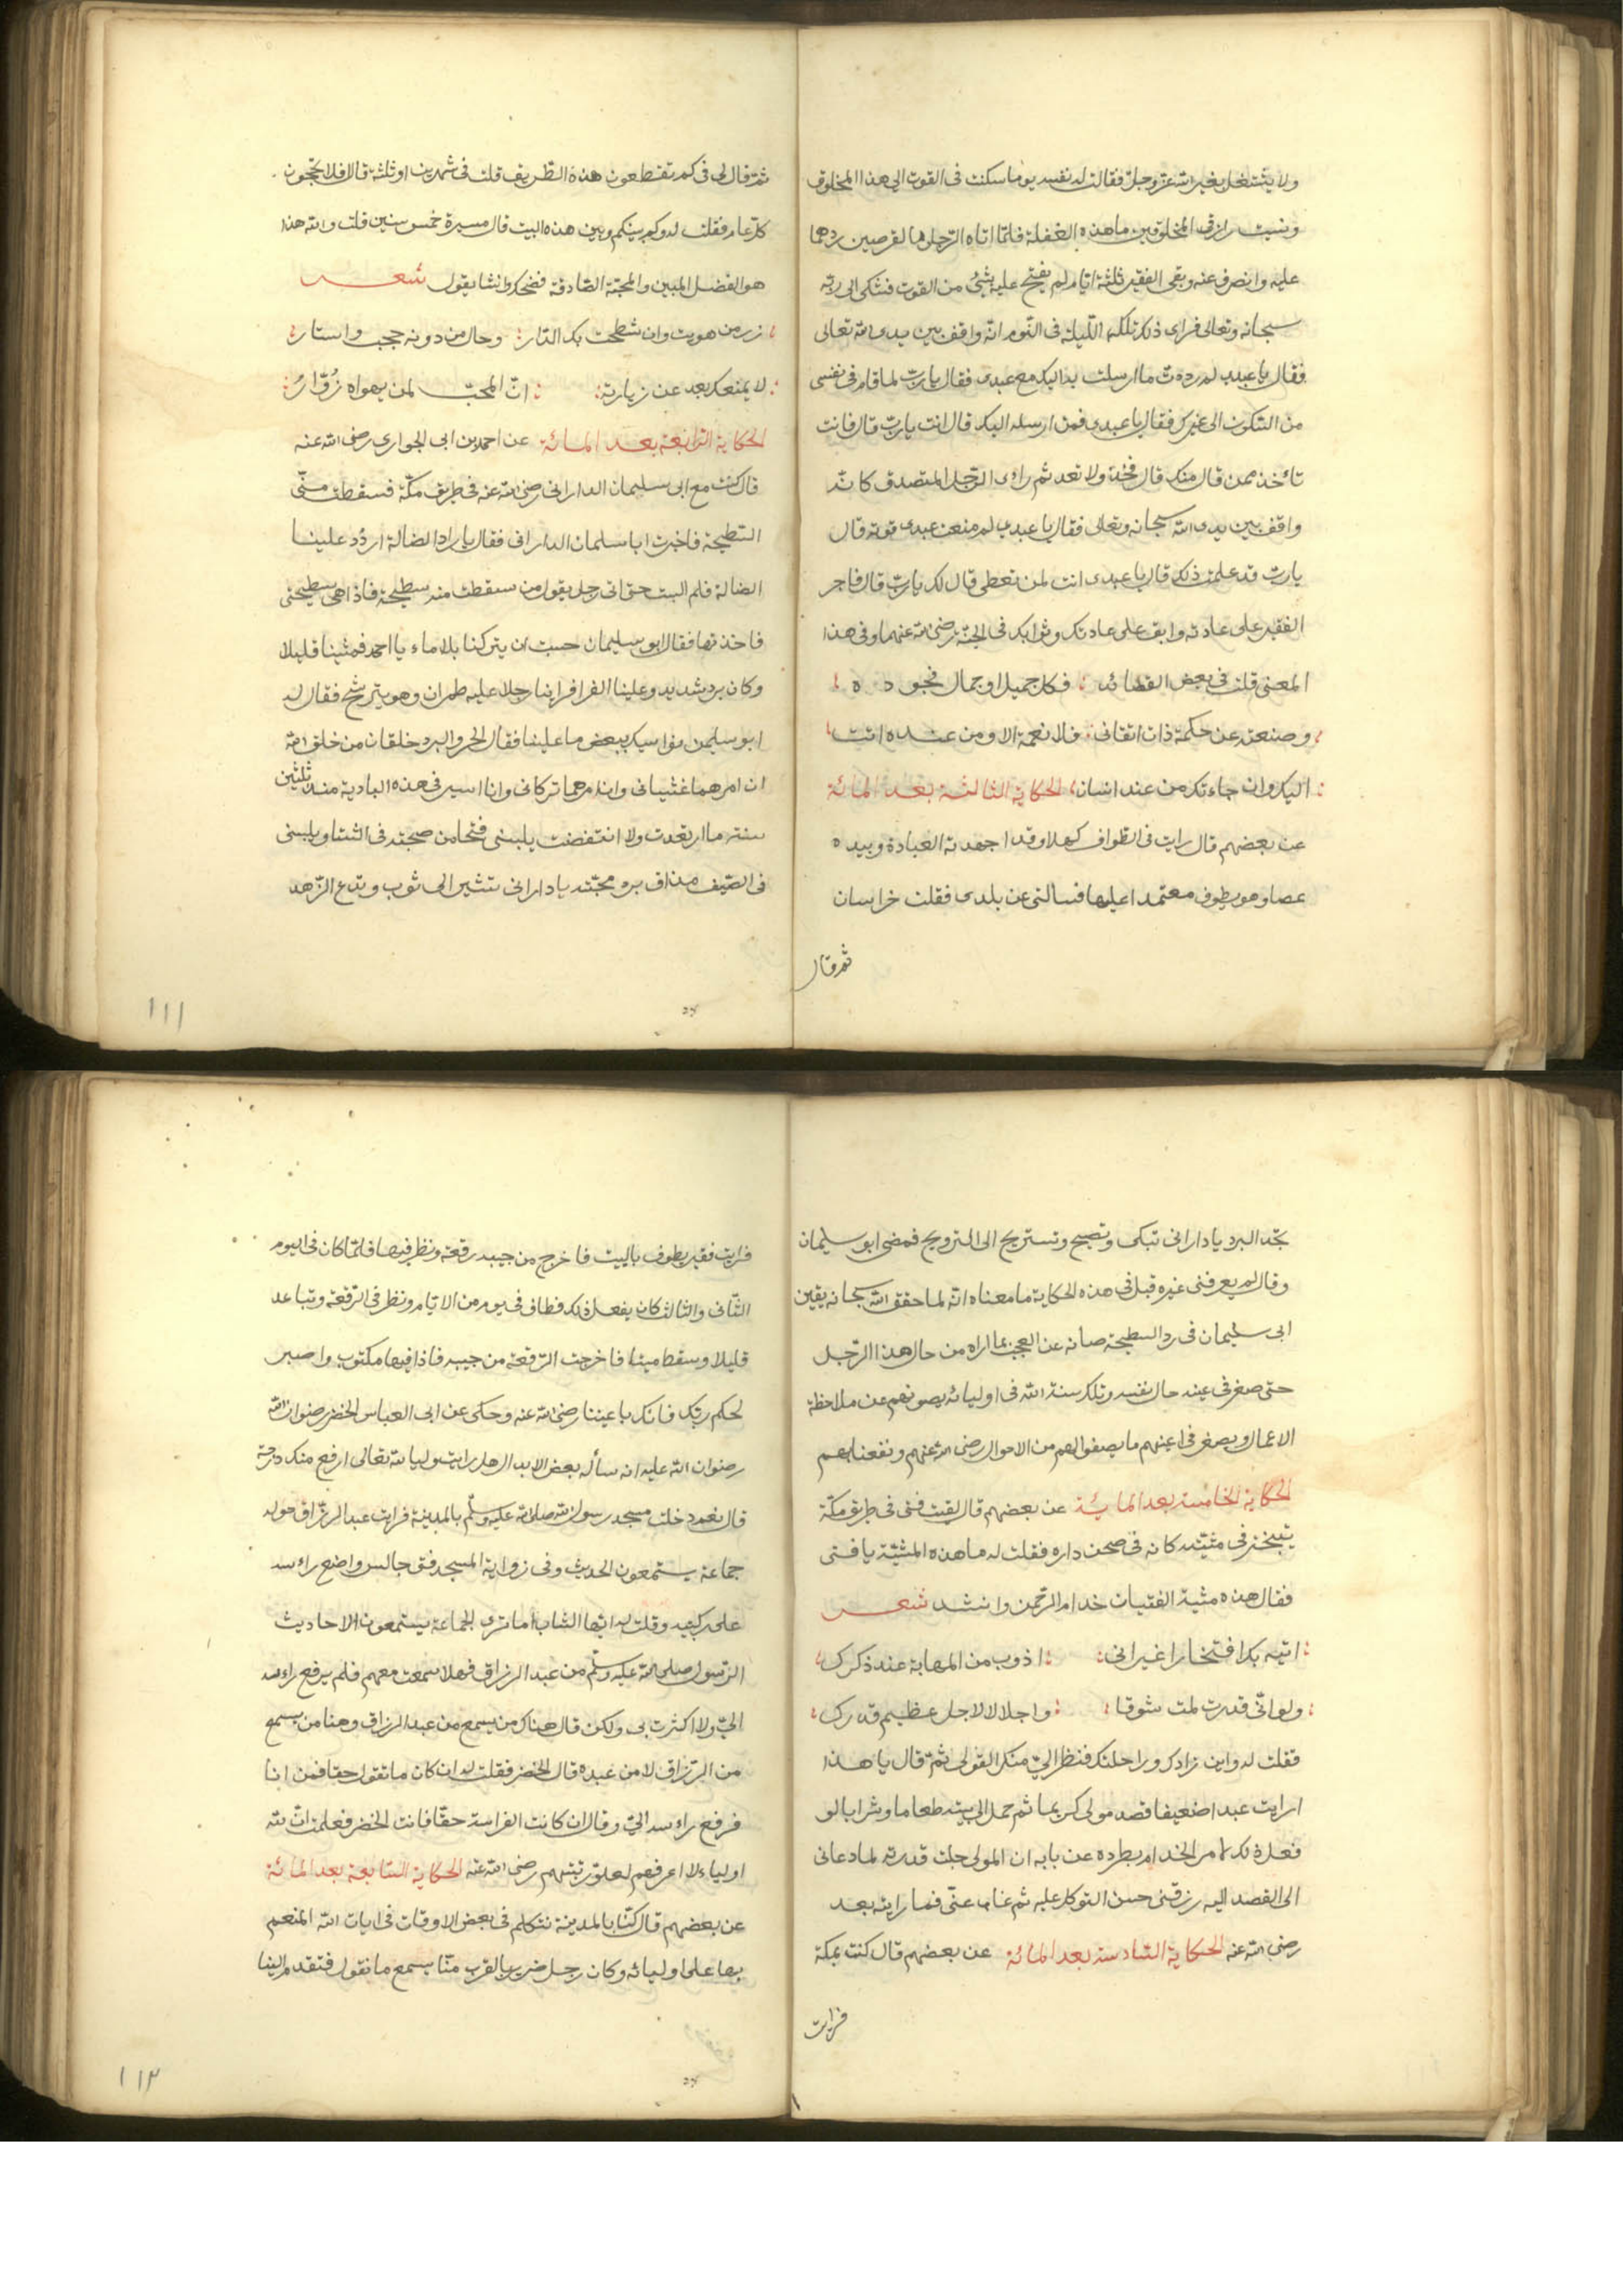 ولا يشتغل بغير الله عز وجل فقالت له نفسه يوما سكنت فى القوت الى هذا المخلوق
ونسيت رازق المخلوقين ما هذه الغفلة فلما اتاه الرجل بالقرصين ردهما
عليه وانصرف عنه وبقى الفقير ثلثة ايام لم يفتح عليه بشئ من القوت فشكى الى ربه
سبحانه وتعالى فراى ذلك تلك الليلة فى النوم انه واقف بين يدى الله تعالى
فقال يا عبدى لم رددت ما ارسلت به اليك مع عبدى فقال يا رب لما قام فى نفسى
من السكون الى غيرك فقال يا عبدى فمن ارسله اليك قال انت يا رب قال فانت
تأخذ ممن قال منك قال فخذه ولا تعد ثم رأى الرجل المتصدق كانه
واقف بين يدى الله سبحانه وتعالى فقال يا عبدى لم منعت عبدى قوته قال
يا رب قد علمت ذلك قال يا عبدى انت لمن تعطى قال لك يا رب قال فاجر
الفقير على عادته وابق على عادتك وثوابك فى الجنة رضى الله عنهما وفى هذا
المعنى قلت فى بعض القصائد فكل جميل او جمال فجوده
وصنعته عن حكمة ذات اتقانى فلا نعمة الا ومن عنده اتت
اليك وان جاءتك من عند انسان الحكاية الثالثة بعد المائة
عن بعضهم قال رايت فى الطواف كهلا وقد اجهدته العبادة وبيده
عصا وهو يطوف معتمدا عليها فسالنى عن بلدى فقلت خراسان
ثم قال
ثم قال لى فى كم تقطعون هذه الطريق قلت فى شهرين او ثلثة قال افلا تحجون
كل عام فقلت له وكم بينكم وبين هذه البيت قال مسيرة خمس سنين قلت والله هذا
هو الفضل المبين والمحبة الصادقة فضحك وانشا يقول شعر
زر من هويت وان شطحت بك الدار وحال من دونه حجب واستار
لا يمنعك بعد عن زيارته ان المحب لمن يهواه زوّارُ
الحكاية الرابعة بعد المائة عن احمد بن ابى الحوارى رضى الله عنه
قال كنت مع ابى سليمان الدارانى رضى الله عنه فى طريق مكة فسقطت منى
السطيحة فاخبرت ابا سلمان الدارانى فقال يا راد الضالة اردد علينا
الضالة فلم البث حتى اتى رجل يقول من سقطت منه سطيحة فاذا هى سطيحتى
فاخذتها فقال ابو سليمان حسبت ان يتركنا بلا ماء يا احمد فمشينا قليلا
وكان برد شديد وعلينا الفرا فراينا رجلا عليه طمران وهو يترشح فقال له
ابو سليمن نواسيك ببعض ما علينا فقال الحر والبرد خلقان من خلق الله
ان امرهما غشيانى وان امرهما تركانى وانا اسير فى هذه البادية منذ ثلثين
سنة ما ارتعدت ولا انتفضت يلبسنى فتحا من محبته فى الشتا ويلبسنى
فى الصيف مذاق برد محبته يا دارانى تشير الى ثوب وتدع الزهد
١١١
تجد البرد يا دارانى تبكى وتصيح وتستريح الى الترويح فمضى ابو سليمان
وقال لم يعرفنى غيره قبل فى هذه الحكاية ما معناه انه لما حقق الله سبحانه يقين
ابى سليمان فى رد السطيحة صانه عن العجب بما اراه من حال هذا الرجل
حتى صغر فى عينه حال نفسه وتلك سنة الله فى اوليائه يصونهم عن ملاحظة
الاعمال ويصغر فى اعينهم ما يصفوا لهم من الاحوال رضى الله عنهم ونفعنا بهم
الحكاية الخامسة بعد المائة عن بعضهم قال لقيت فتى فى طريق مكة
يتبختر فى مشيته كانه فى صحن داره فقلت له ما هذه المشية يا فتى
فقال هذه مشية الفتيان خدام الرحمن وانشد شعر
اتيه بك افتخارا غير انى اذوب من المهابة عند ذكرك
ولو انى قدرت لمت شوقا واجلالا لاجل عظيم قدرك
فقلت له واين زادك وراحلتك فنظر الى منكر القولى ثم قال يا هذا
ارايت عبدا ضعيفا قصد مولى كريما ثم حمل الى بيته طعاما وشرابا لو
فعل ذلك لامر الخدام بطرده عن بابه ان المولى جلت قدرته لما دعانى
الى القصد اليه رزقنى حسن التوكل عليه ثم غاب عنى فما رايته بعد
رضى الله عنه الحكاية السادسة بعد المائة عن بعضهم قال كنت بمكة
فرايت
فرايت فقير يطوف بالبيت فاخرج من جيبه رقعة ونظر فيها فلما كان فى اليوم
الثانى والثالث كان يفعل ذلك فطاف فى يوم من الايام ونظر فى الرقعة وتباعد
قليلا وسقط ميتا فاخرجت الرقعة من جيبه فاذا فيها مكتوب واصبر
لحكم ربك فانك باعيننا رضى الله عنه وحكى عن ابى العباس الخضر رضوان الله
رضوان الله عليه انه سأله بعض الابدال هل رايت وليا لله تعالى ارفع منك درجة
قال نعم دخلت مسجد رسول الله صلى الله عليه وسلم بالمدينة فرايت عبد الرزاق حوله
جماعة يستمعون الحديث وفى زواية المسجد فتى جالس واضع راءسه
على ركبتيه وقلت له ايها الشاب اما ترى الجماعة يستمعون الاحاديث
الرسول صلى الله عليه وسلم من عبد الرزاق فهلا سمعت معهم فلم يرفع راءسه
الىّ ولا اكثرت بى ولكن قال هناك من يسمع من عبد الرزاق وهنا من يسمع
من الرزاق لا من عبده قال الخضر فقلت له ان كان ما تقول حقا فمن انا
فرفع راءسه الىّ وقال ان كانت الفراسة حقا فانت الخضر فعلمت ان لله
اولياء لا اعرفهم لعلو رتبتهم رضى الله عنه الحكاية السابعة بعد المائة
عن بعضهم قال كنا بالمدينة نتكلم فى بعض الاوقات فى ايات الله المنعم
بها على اوليائه وكان رجل ضرير بالقرب منا يسمع ما نقول فتقدم الينا
١١٢